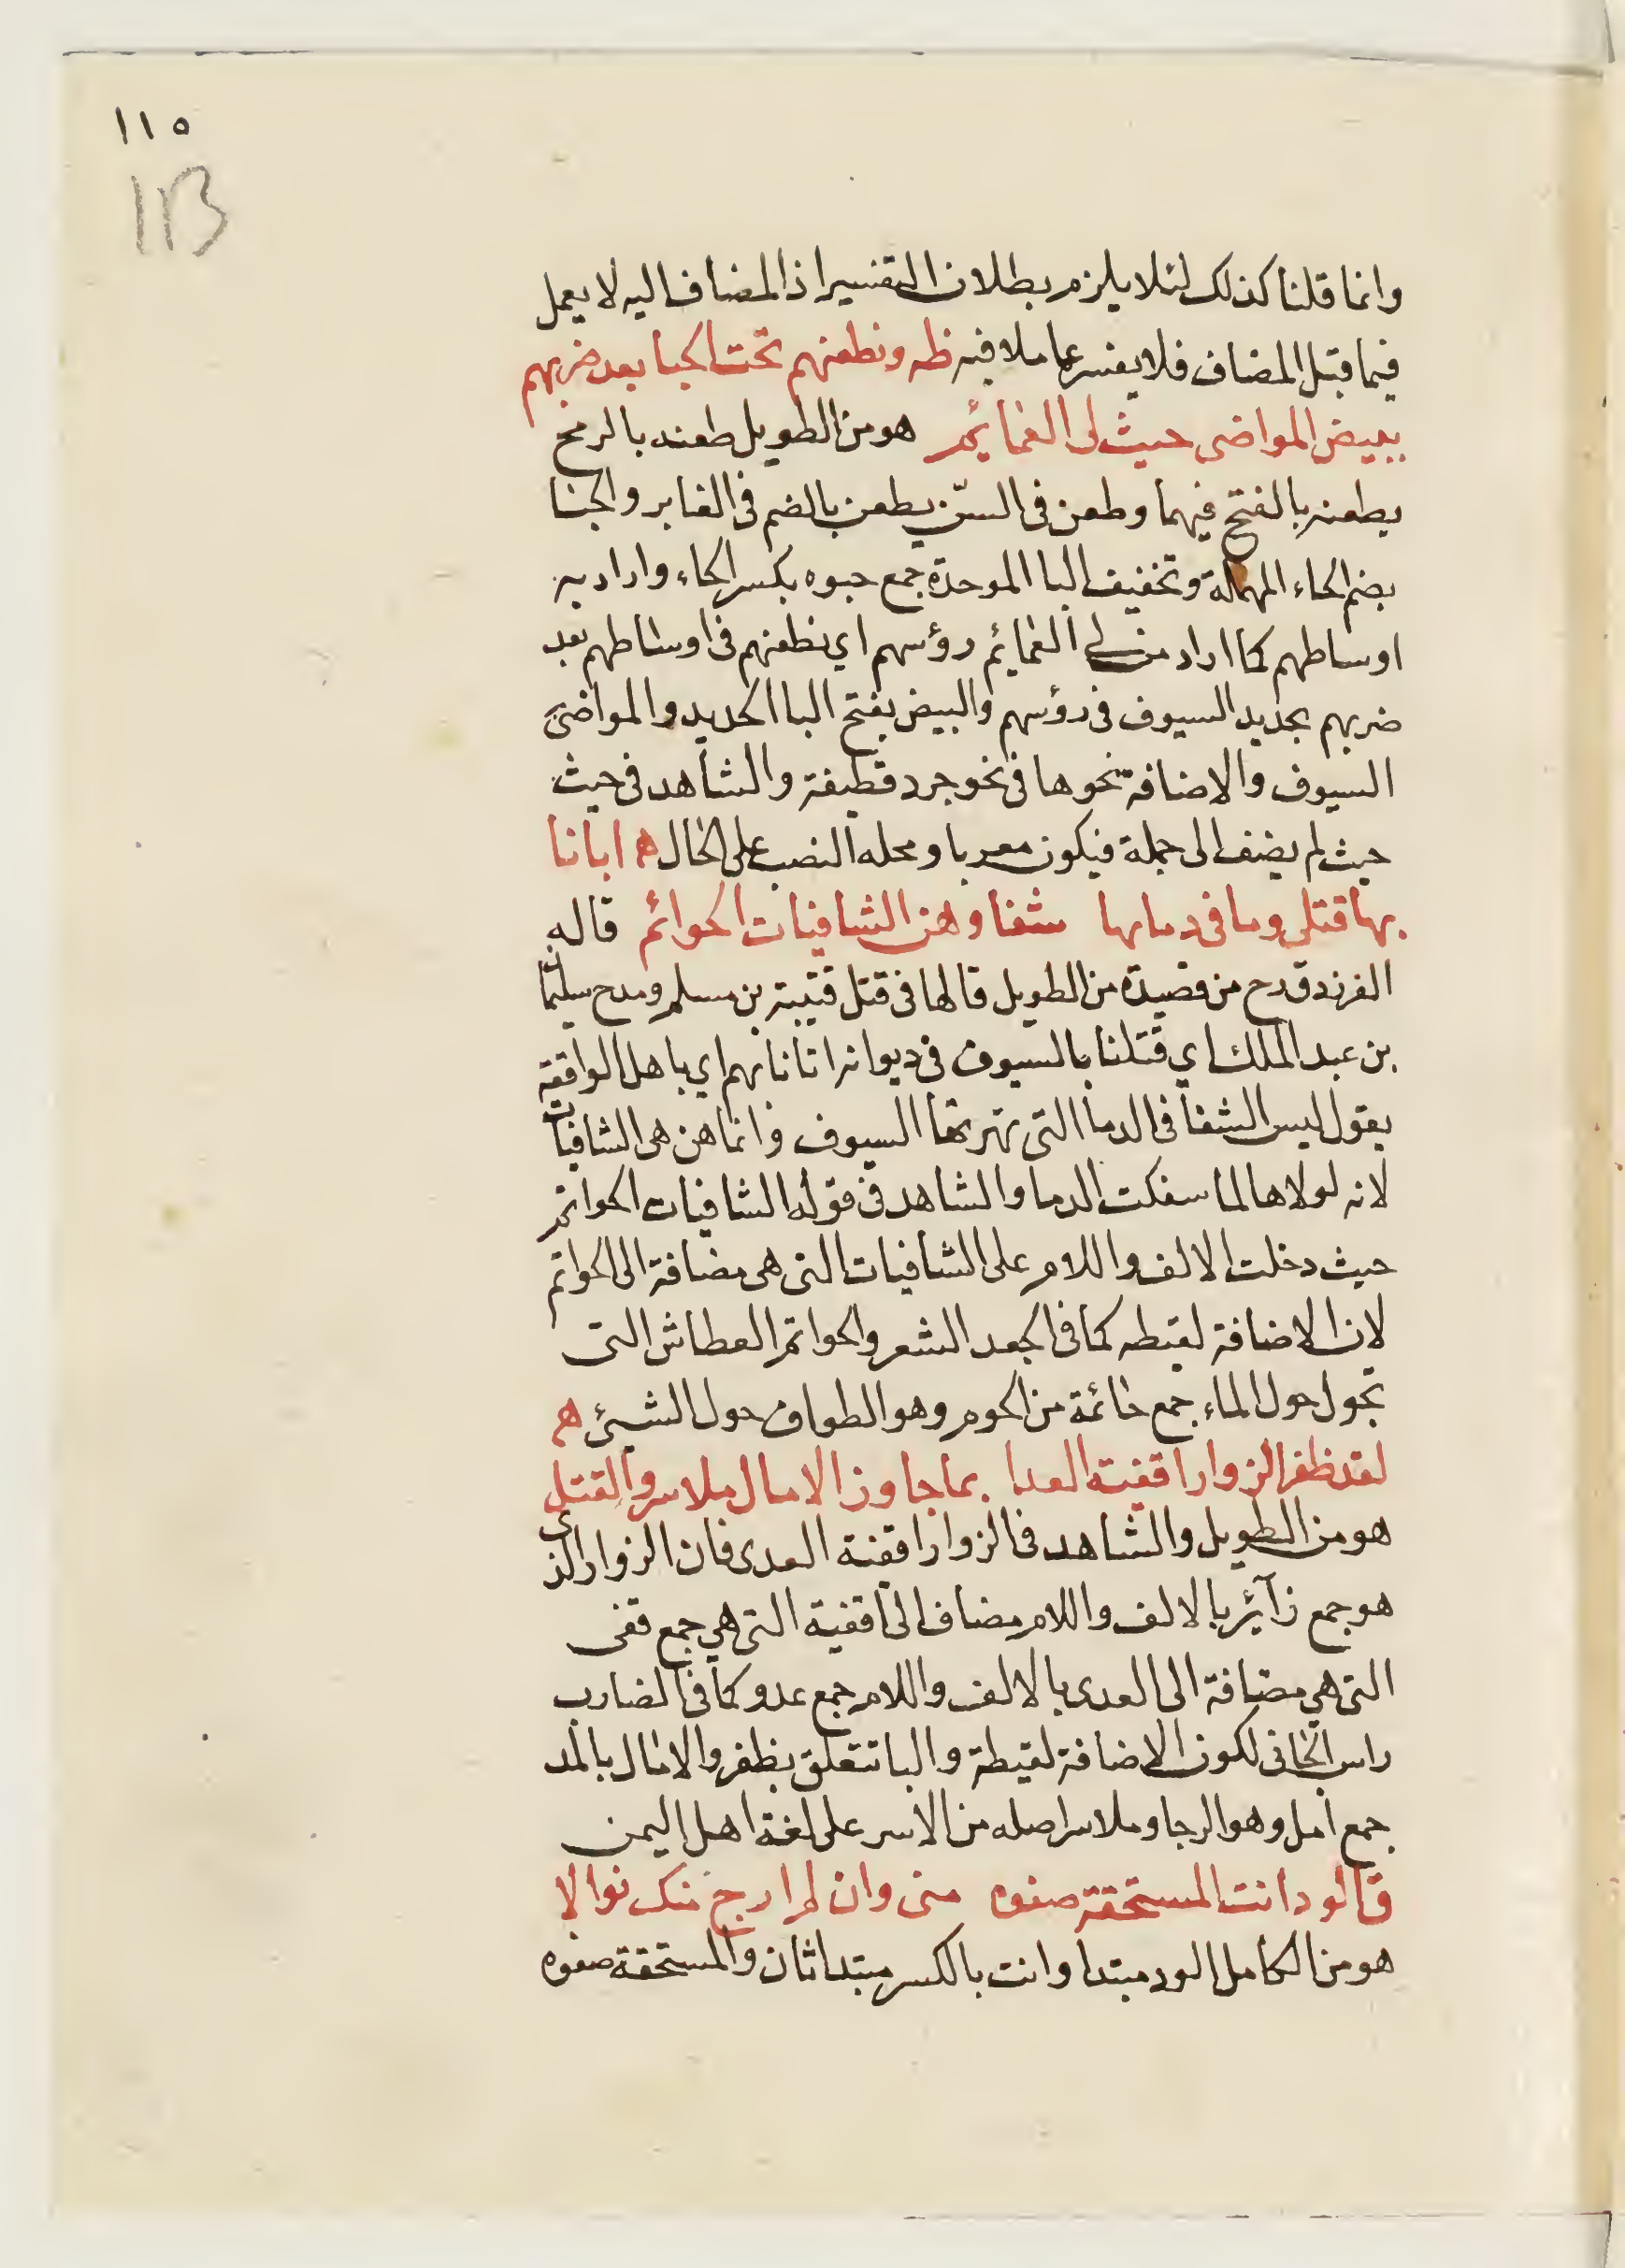 ١١٥
113
وانما قلنا كذلك لئلا يلزم بطلان التفسير اذ المضاف اليه لا يعمل
فيما قبل المضاف فلا يفسر عاملا فيه ظه ونطعنهم تحت الحبا بعد ضربهم
ببيض المواضى حيث لى العمائم هو من الطويل طعنه بالرمح
يطعنه بالفتح فيهما وطعن فى السنّ يطعن بالضم فى الغابر والحبا
بضم الحاء المهملة وتخفيف البا الموحدة جمع حبوه بكسر الحاء واراد به
اوساطهم كما اراد من لى العمايم رؤسهم اي نطعنهم فى اوساطهم بعد
ضربهم بحديد السيوف فى رؤسهم والبيض بفتح البا الحديد والمواضي
السيوف والاضافة نحوها فى نحو جرد قطيفة والشاهد فى حيث
حيث لم يضف الى جملة فيكون معربا ومحله النصب على الحال ه ابانا
بها قتلى وما فى دمايها شفا وهن الشافيات الحوائم قاله
الفرزدق رح من قصيدة من الطويل قالها فى قتل قتيبة بن مسلم ومدح سليمان
بن عبد الملك اي قتلنا بالسيوف فى ديوانه اتانا بهم اي باهل الواقعة
يقول ليس الشفا فى الدما التى تهرتها السيوف وانما هن هى الشافيات
لانه لولاها لما سفكت الدما والشاهد فى قوله الشافيات الحوائم
حيث دخلت الالف واللام على الشافيات التى هى مضافة الى الحوائم
لان الاضافة لفيطه كما فى الجعد الشعر والحوائم العطاش التى
تجول حول الماء جمع حائمة من الحوم وهو الطواف حول الشيئ ه
لقد ظفر الزوار اقفية العدا بما جاوز الامال ملاسر والقتل
هو من الطويل والشاهد فى الزوار اقفية العدى فان الزوار الذى
هو جمع زآئر بالالف واللام مضاف الى اقفية التى هي جمع قفى
التى هي مضافة الى العدى بالالف واللام جمع عدو كما فى الضارب
راس الجانى لكون الاضافة لفيطة والبا تتعلق بظفر والامال بالمد
جمع امل وهو الرجا وملاسر اصله من الاسر على لغة اهل اليمن
قالود انت المستحقة صفوه منى وان لم ارج منك نوالا
هو من الكامل الود مبتدا وانت بالكسر مبتدا ثان والمستحقة صفوه